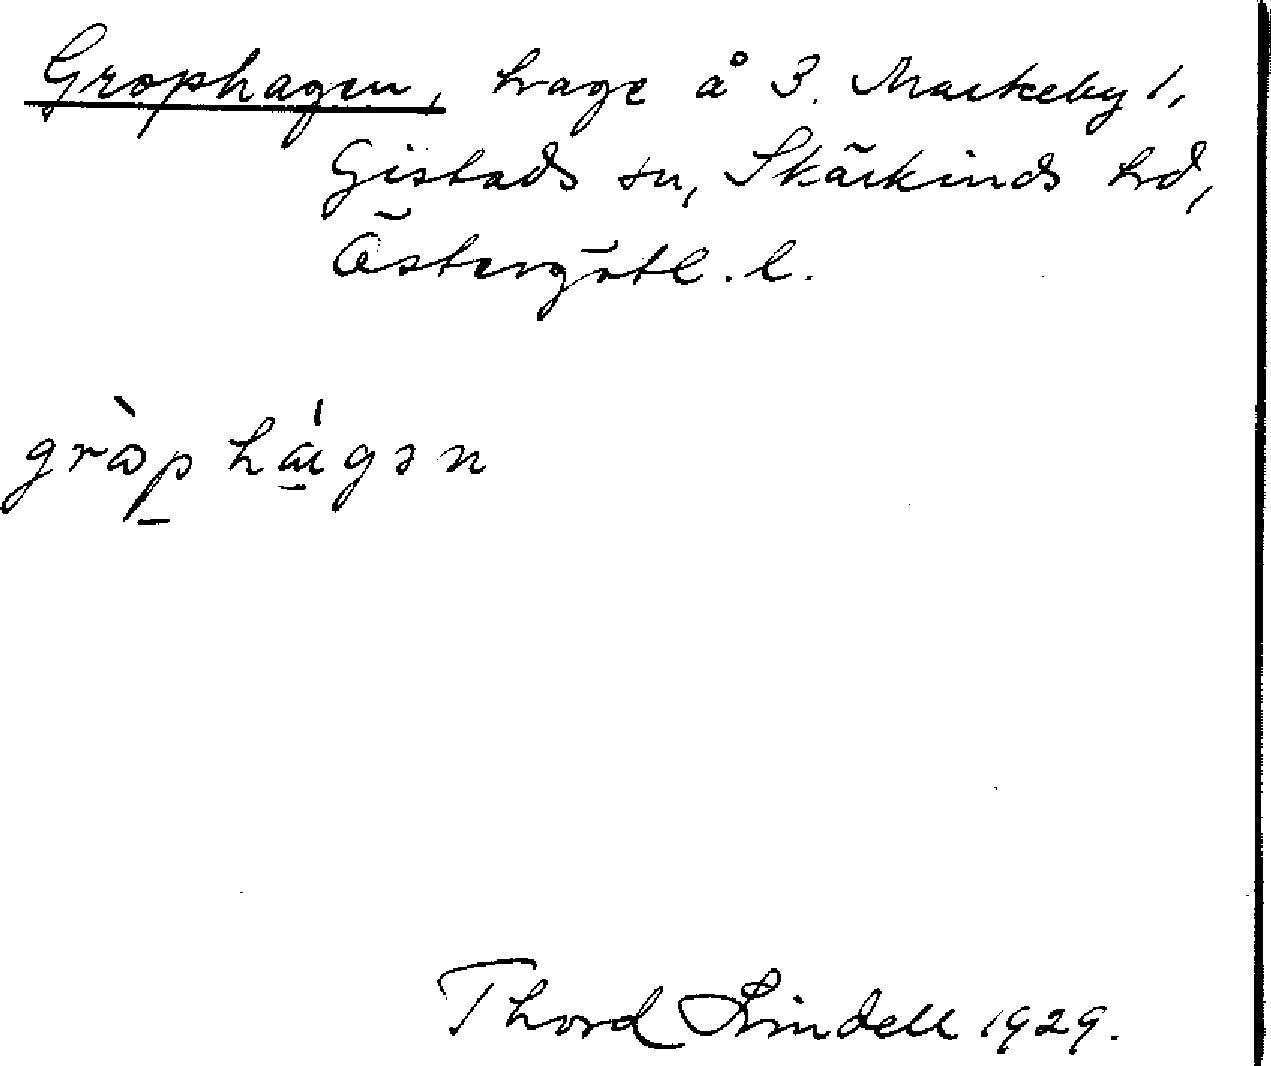 Grophagen, hage å 3. Markeby 1,
Gistads sn, Skärkinds hd,
Östergötl. l.
grò̀p hágən
Thord Lindell 1929.